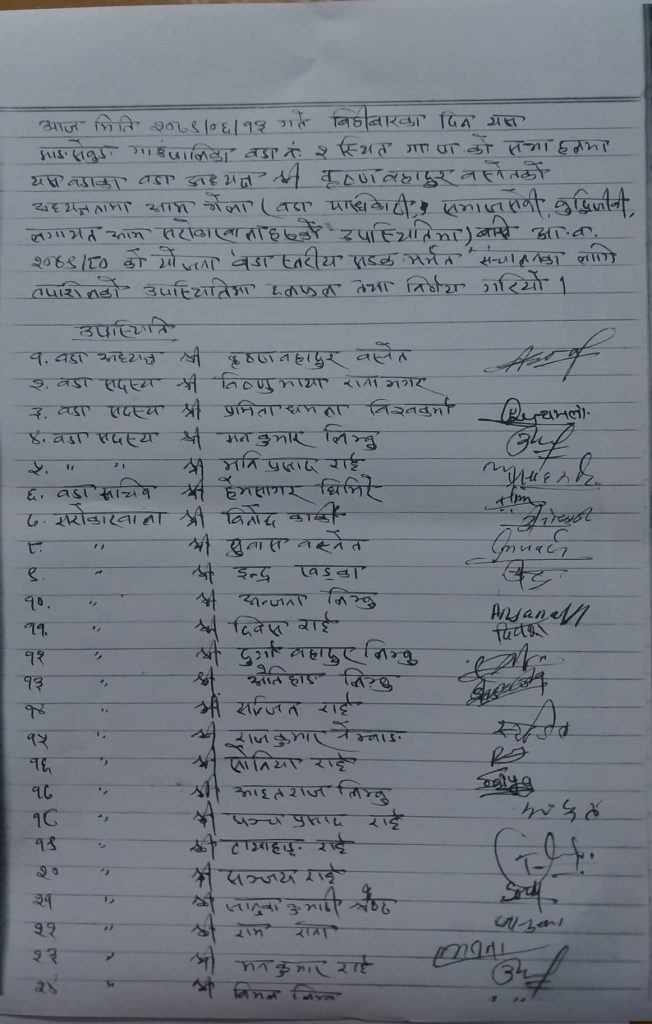 आज मिति २०७९/०६/१३ गते बिहीबारका दिन यस
माङसेबुङ गाउँपालिका वडा नं. २ स्थित गा पा को सभा हलमा
यस वडाका वडा अध्यक्ष श्री कृष्ण बहादुर बस्नेतको
अध्यक्षतामा आम भेला (वडा पदाधिकारी, समाजसेवी, बुद्धिजीवी,
लगायत आम सरोकारवालाहरुको उपस्थितिमा) बसी आ.व.
२०७९/८० को योजना वडा स्तरीय सडक मर्मत संचालनका लागि
तपशिलको उपस्थितिमा छलफल तथा निर्णय गरियो ।
उपस्थिति
१. वडा अध्यक्ष श्री कृष्ण बहादुर बस्नेत
२. वडा सदस्य श्री विष्णु माया राना मगर
३. वडा सदस्य श्री प्रमिता धमला विश्वकर्मा
४. वडा सदस्य श्री मन कुमार लिम्बु
५. " " श्री मनि प्रसाद राई
६. वडा सचिव श्री हेमसागर घिमिरे
७. सरोकारवाला श्री विनोद कार्की
८. " श्री सुवास बस्नेत
९. " श्री इन्द्र खड्का
१०. " श्री अन्जना लिम्बु Anjana
११. " श्री दिवस राई दिवश
१२ " श्री दुर्गा बहादुर लिम्बु
१३ " श्री लिम्बु
१४ " श्री सन्जित राई
१५ " श्री राजकुमार
१६ " श्री सोनिया राई
१७ " श्री आइतराज लिम्बु
१८ " श्री पञ्च प्रसाद राई
१९ " श्री राई
२० " श्री सन्जय राई
२१ " श्री कुमारी श्रेष्ठ
२२ " श्री राम राना
२३ " श्री मन कुमार राई
२४ " श्री विमल लिम्बु